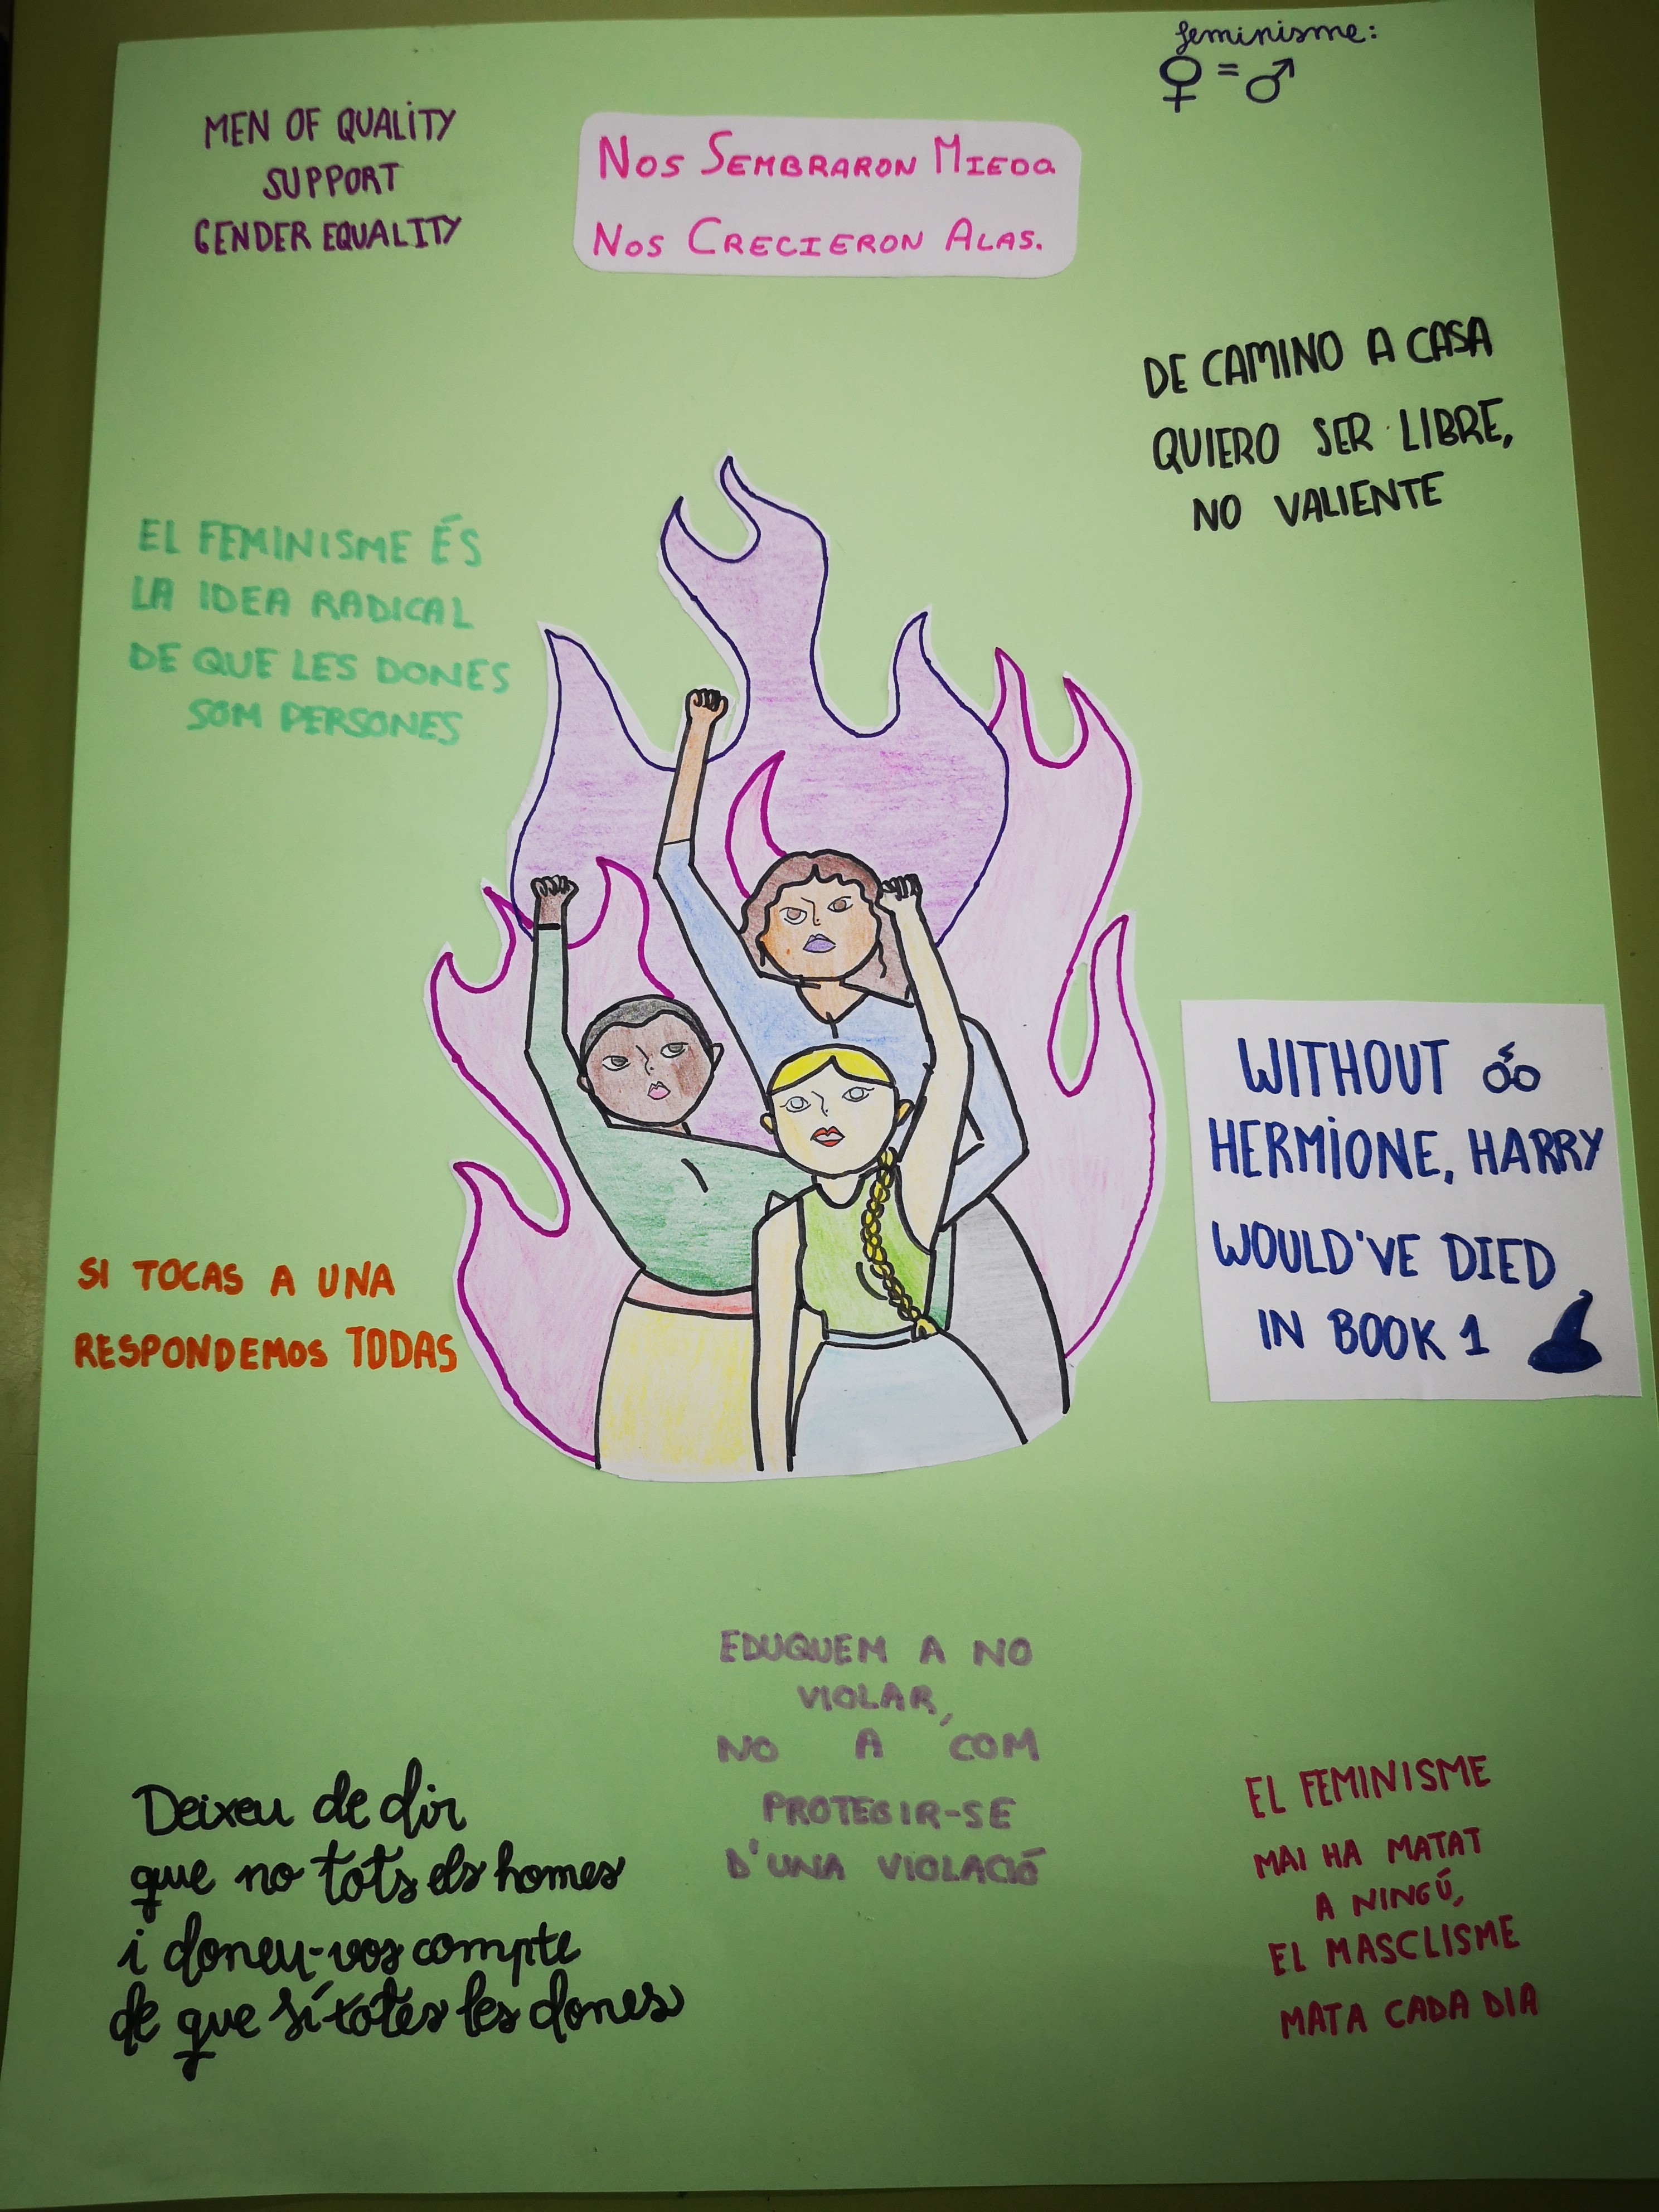 feminisme:
♀ = ♂
MEN OF QUALITY
SUPPORT
GENDER EQUALITY
NOS SEMBRARON MIEDO
NOS CRECIERON ALAS.
DE CAMINO A CASA
QUIERO SER LIBRE,
NO VALIENTE
EL FEMINISME ÉS
LA IDEA RADICAL
DE QUE LES DONES
SOM PERSONES
WITHOUT
HERMIONE, HARRY
WOULD'VE DIED
IN BOOK 1
SI TOCAS A UNA
RESPONDEMOS TODAS
EDUQUEM A NO
VIOLAR,
NO A COM
PROTEGIR-SE
D'UNA VIOLACIÓ
Deixeu de dir
que no tots els homes
i doneu-vos compte
de que sí totes les dones
EL FEMINISME
MAI HA MATAT
A NINGÚ,
EL MASCLISME
MATA CADA DIA